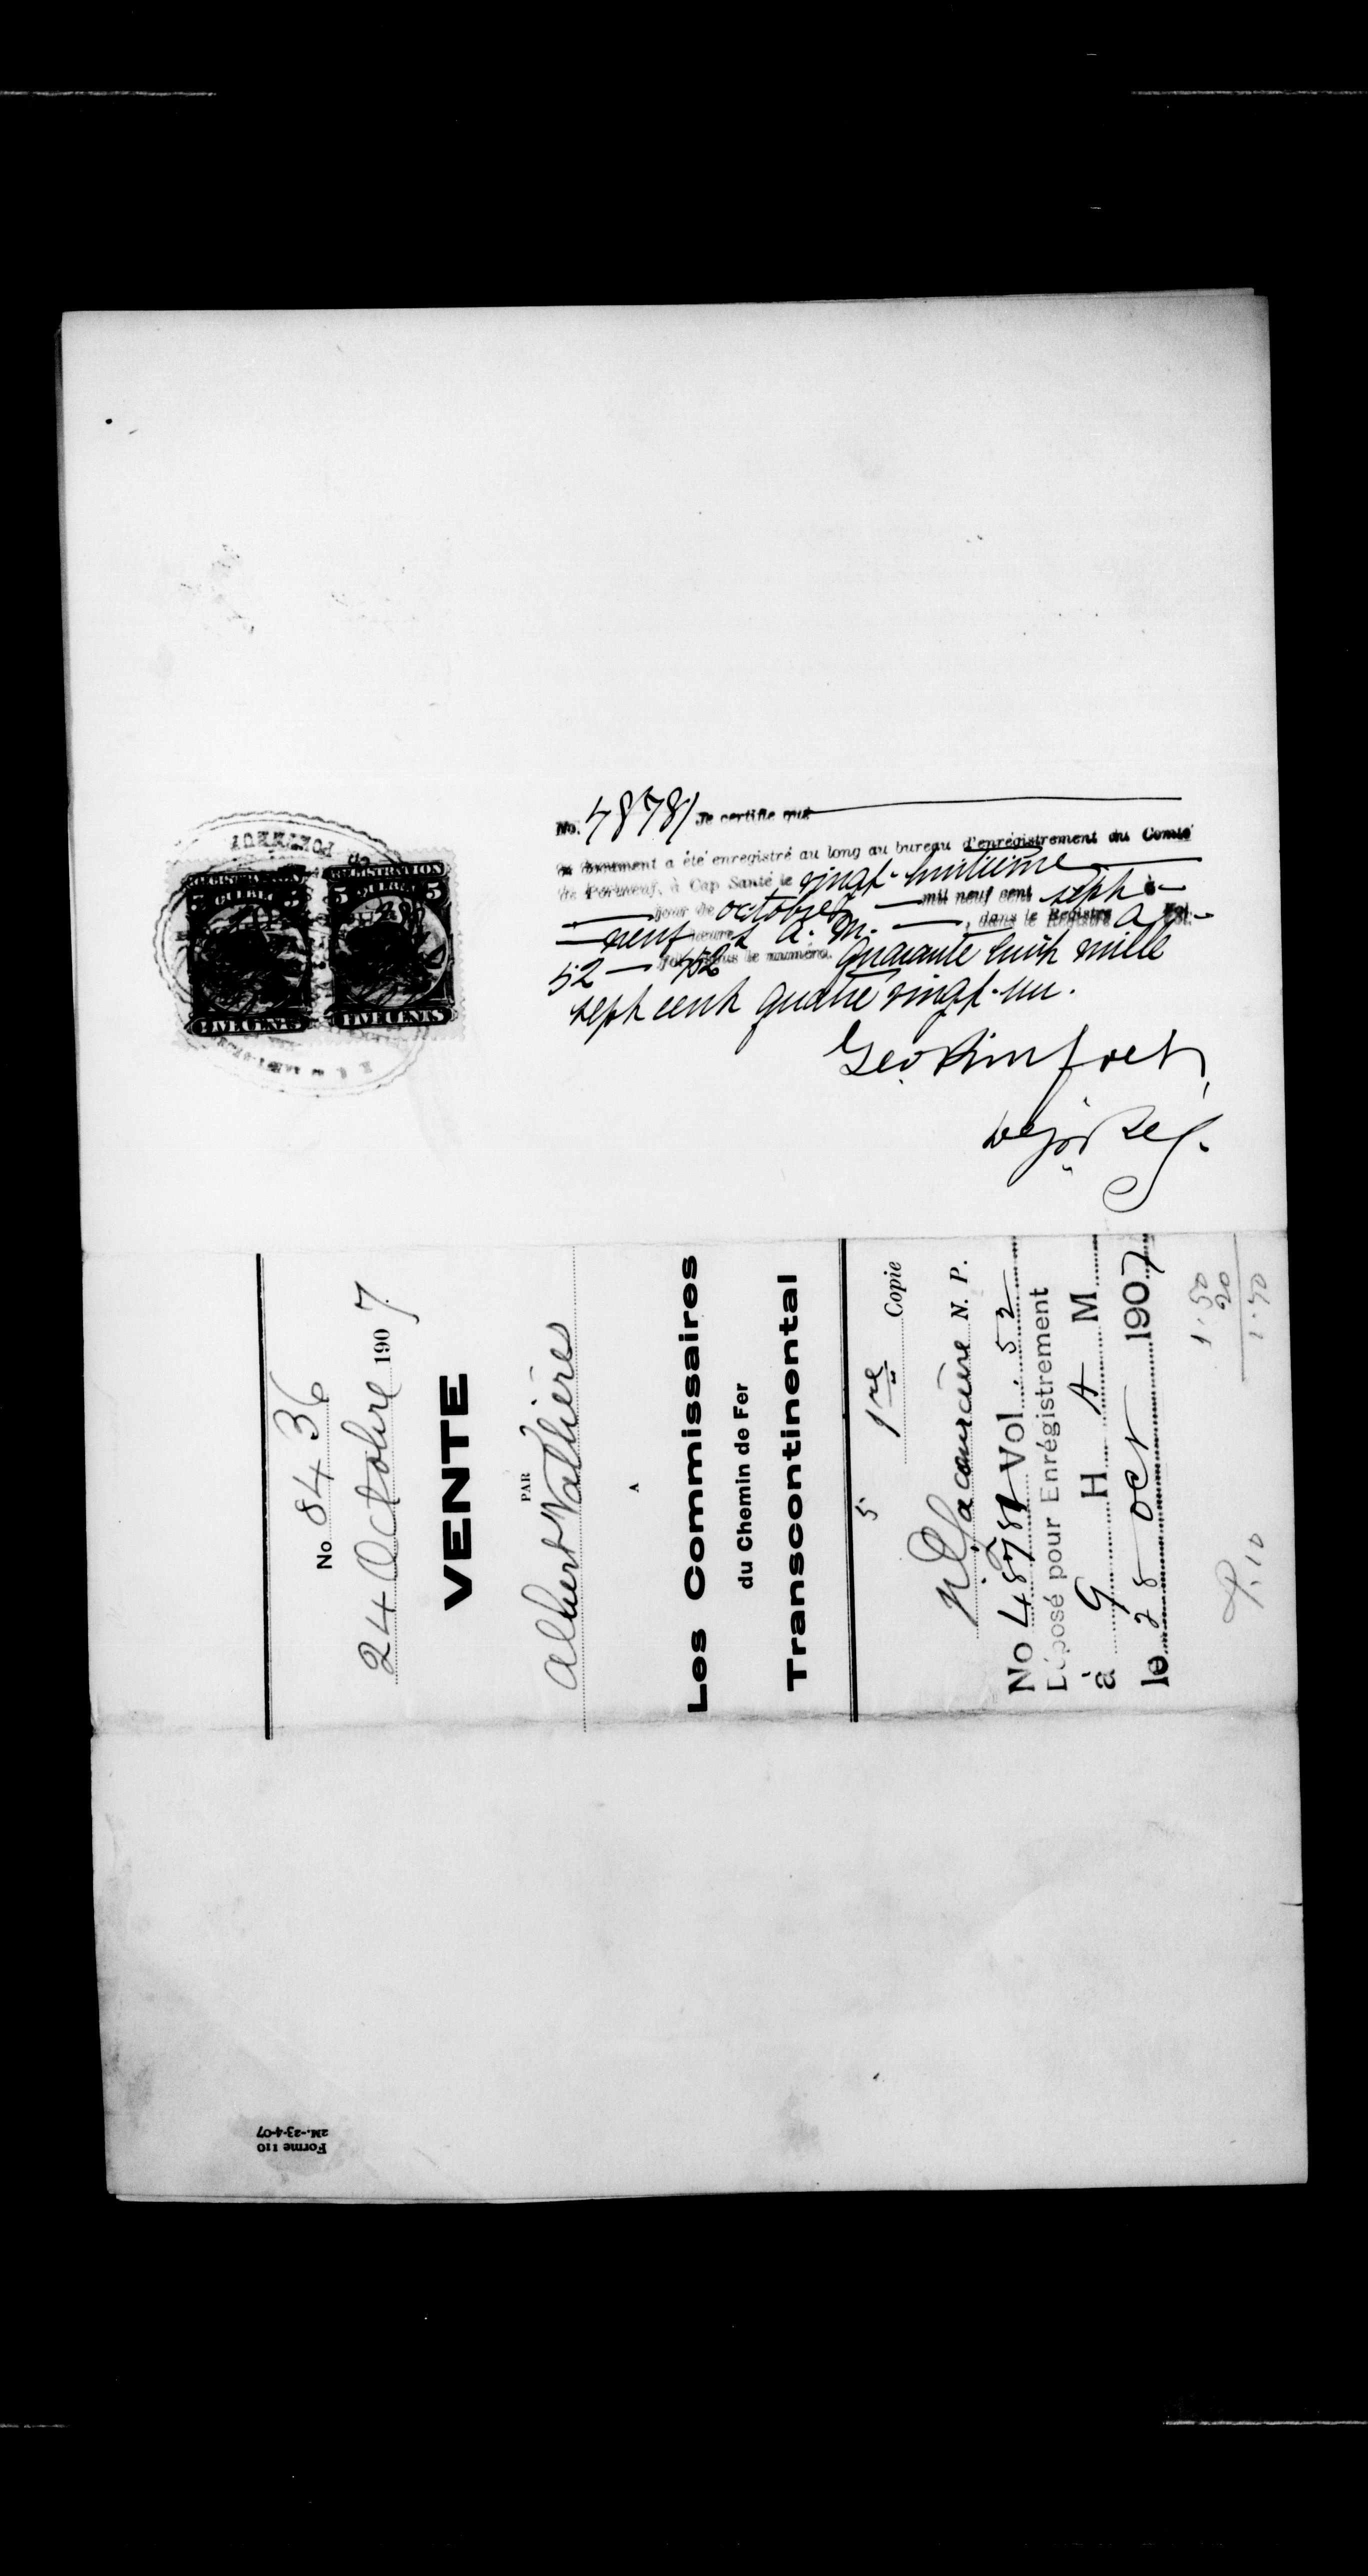 No. 48781 Je certifie que
ce document a été enregistré au long au bureau d'enregistrement du Comté
de Portneuf, à Cap Santé le vingt-huitième
jour de octobre mil neuf cent sept à
neuf heures A. M. , dans le Registre A Vol.
52 sous le numéro. Quarante huit mille
sept cent quatre vingt-un.
PORTNEUF
REGISTRATION
5 QUEBEC 5
FIVE CENTS
REGISTRATION
5 QUEBEC 5
FIVE CENTS
No 8436
24 Octobre 1907
VENTE
PAR
Albert Vallières
A
Les Commissaires
du Chemin de Fer
Transcontinental
5
1re Copie
Lacourcière N. P.
No 48781 Vol. 52
Déposé pour Enrégistrement
à 9 H A M
le 28 Oct 1907
1.50
20
Forme 110
2M.-23-4-07